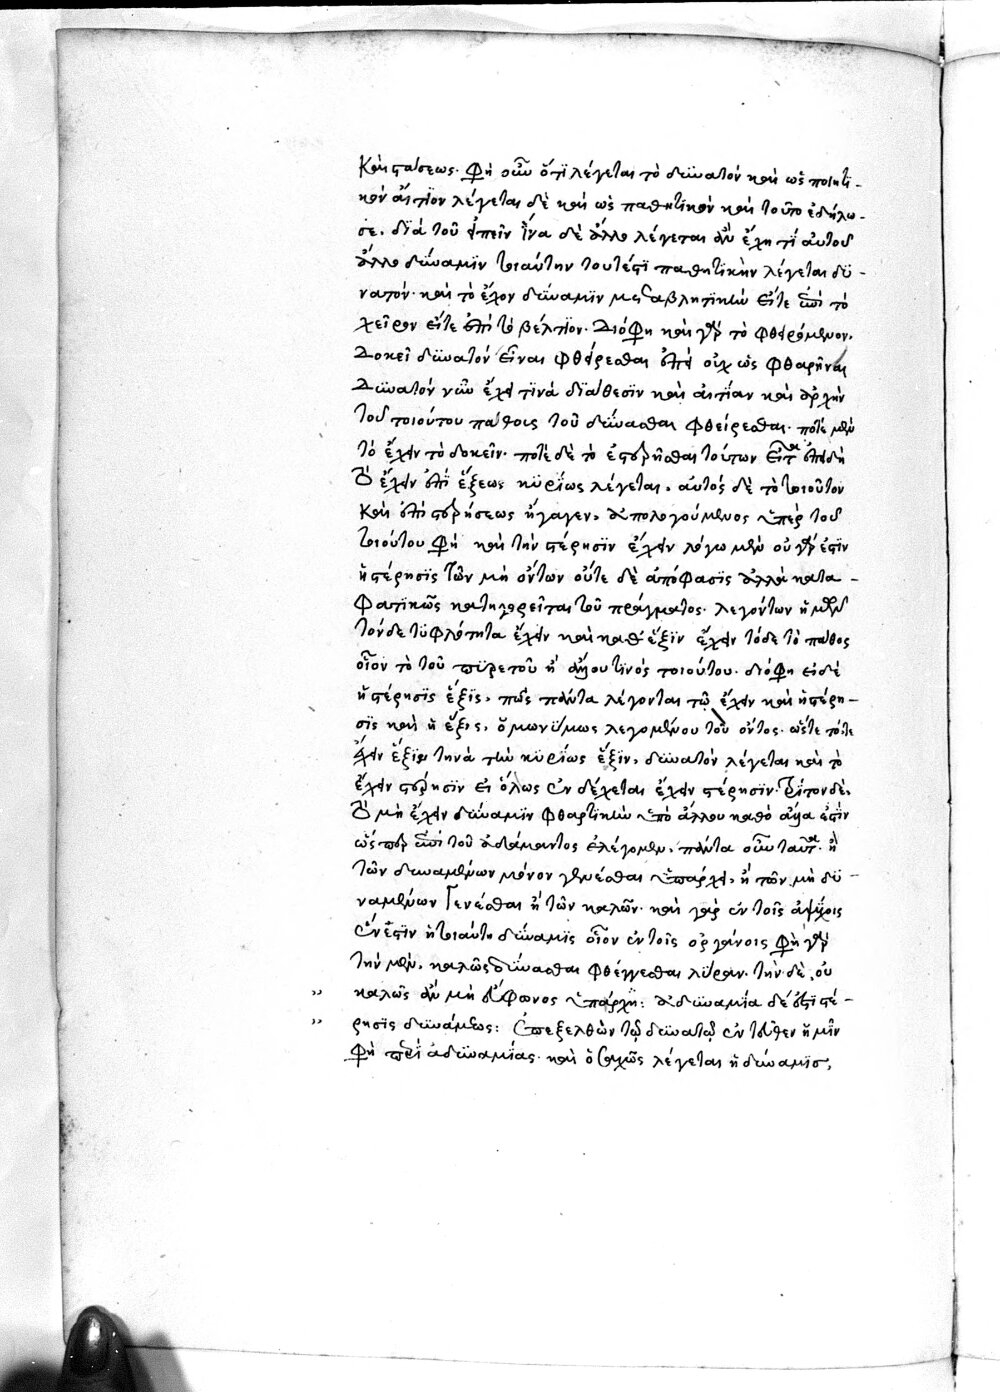 καὶ στάσεως. φη οὖν ὅτι λέγεται τὸ δυνατὸν καὶ ὡς ποιητι-
κὸν αἴτιον λέγεται δὲ καὶ ὡς παθητικὸν καὶ τοῦτο ἐδήλω-
σε. διὰ τοῦ εἰπεῖν ἕνα δὲ ἄλλο λέγεται ἂν ἔχη τι αὐτοῦ
ἄλλο δύναμιν τοιαύτην τουτέστι παθητικὴν λέγεται δυ-
νατόν. καὶ τὸ ἔχον δύναμιν μεταβλητικὴν εἴτε ἐπὶ τὸ
χεῖρον εἴτε ἐπὶ τὸ βέλτιον. διό φη καὶ γὰρ τὸ φθειρόμενον.
δοκεῖ δυνατὸν εἶναι φθείρεσθαι ἐπεὶ οὐχ ὡς φθαρῆναι
δυνατὸν νῦν ἔχει τινὰ διάθεσιν καὶ αἰτίαν καὶ ἀρχὴν
τοῦ τοιούτου πάθους τοῦ δύνασθαι φθείρεσθαι. ποτὲ μὲν
τὸ ἔχειν τὸ δοκεῖν. ποτὲ δὲ τὸ ἐστερῆσθαι τούτων εἶτα ἐπειδὴ
τὸ ἔχειν ἐπὶ ἕξεως κυρίως λέγεται. αὐτὸς δὲ τὸ τοιοῦτον
καὶ ἐπὶ στερήσεως ἤγαγεν, ἀπολογούμενος ὑπὲρ τοῦ
τοιούτου φη καὶ τὴν στέρησιν ἔχειν λόγω μὲν οὐ γάρ ἐστιν
ἡ στέρησις τῶν μὴ ὄντων οὔτε δὲ ἀπόφασις ἀλλὰ κατα-
φατικῶς κατηγορεῖται τοῦ πράγματος. λεγόντων ἡμῶν
τόνδε τυφλότητα ἔχειν καὶ καθ' ἕξιν ἔχειν τόδε τὸ πάθος
οἷον τὸ τοῦ πυρετοῦ ἢ ἄλλου τινὸς τοιούτου. διό φη εἰ δὲ
ἡ στέρησις ἕξις, πῶς πάντα λέγονται τῷ ἔχειν καὶ ἡ στέρη-
σις καὶ ἡ ἕξις, ὁμωνύμως λεγομένου τοῦ ὄντος. ὥστε τότε
ἔχειν ἕξιν τινὰ τὴν κυρίως ἕξιν, δυνατὸν λέγεται καὶ τὸ
ἔχειν στέρησιν εἰ ὅλως ἐνδέχεται ἔχειν στέρησιν. τρίτον δὲ.
τὸ μὴ ἔχειν δύναμιν φθαρτικὴν ὑπὸ ἄλλου καθὸ ἄλλα ἐστὶν
ὥσπερ ἐπὶ τοῦ ἀδάμαντος ἐλέγομεν. πάντα οὖν ταῦτα ἢ
τῶν δυναμένων μόνον γενέσθαι ὑπάρχει, ἢ τῶν μὴ δυ-
ναμένων γενέσθαι ἢ τῶν καλῶν. καὶ γὰρ ἐν τοῖς ἀψύχοις
ἔνεστιν ἡ τοιαύτη δύναμις οἷον ἐν τοῖς ὀργάνοις φη γὰρ
τὴν μὲν. καλῶς δύνασθαι φθέγγεσθαι λύραν. τὴν δὲ, οὐ
καλῶς ἂν μὴ εὔφωνος ὑπάρχη: ἀδυναμία δέ ἐστι στέ-
ρησις δυνάμεως: ἐπεξελθὼν τῷ δυνατῷ ἐντεῦθεν ἡμῖν
φη περὶ ἀδυναμίας. καὶ ὁσαχῶς λέγεται ἡ δύναμις,